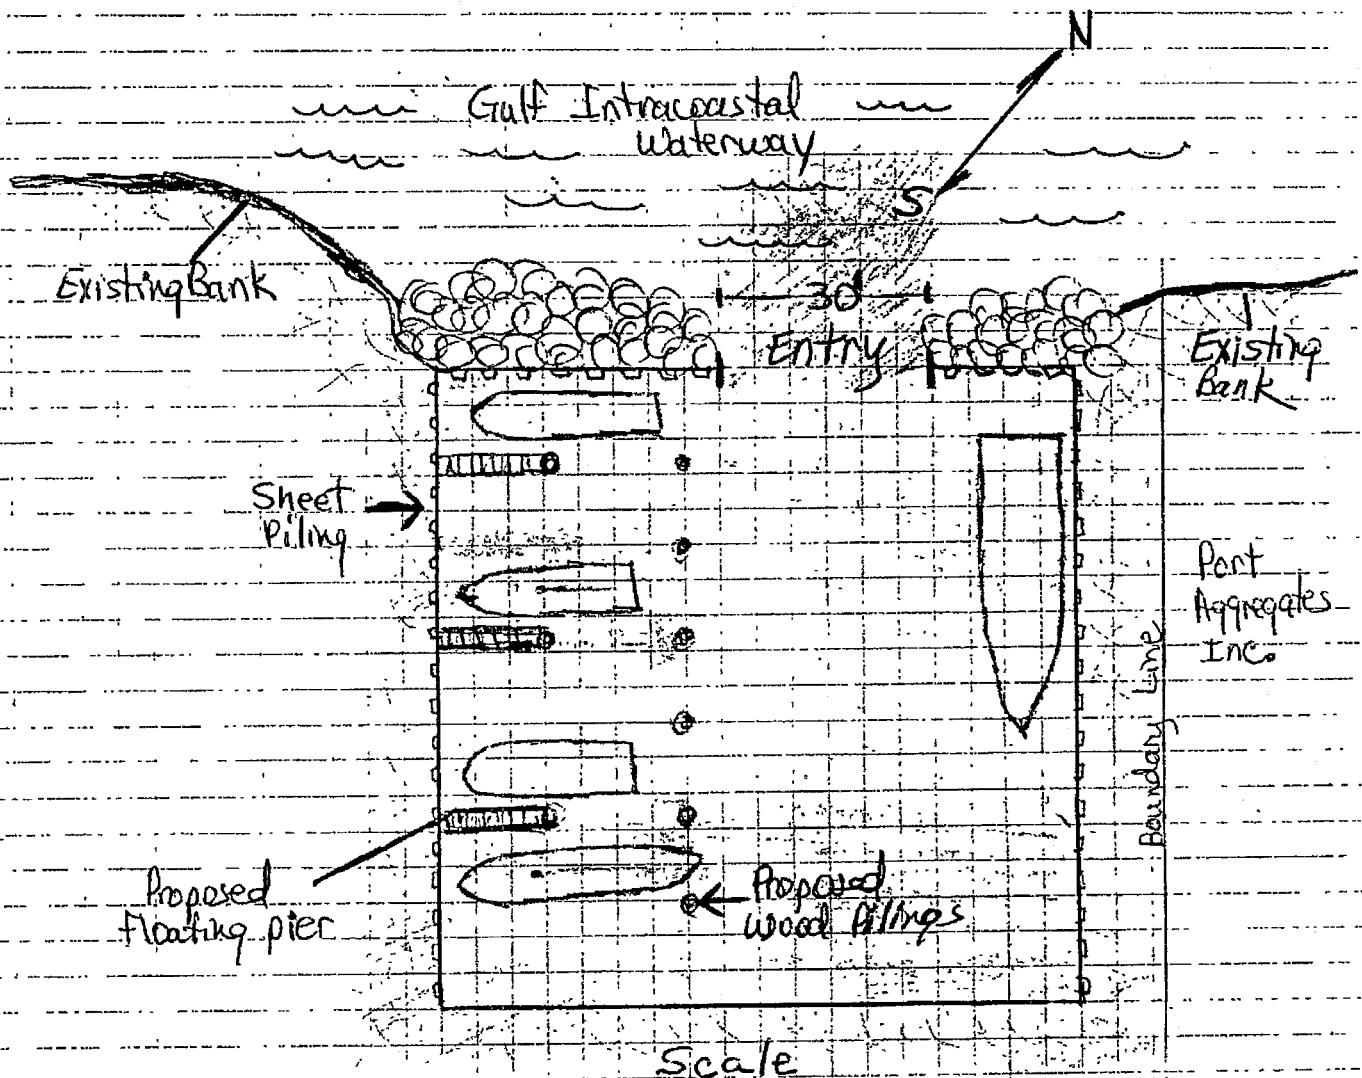 N
Gulf Intracoastal
Waterway
S
Existing Bank
30'
Entry
Existing
Bank
Sheet
Piling
Port
Aggregates
Inc.
Boundary Line
Proposed
Floating pier
Proposed
Wood Pilings
Scale